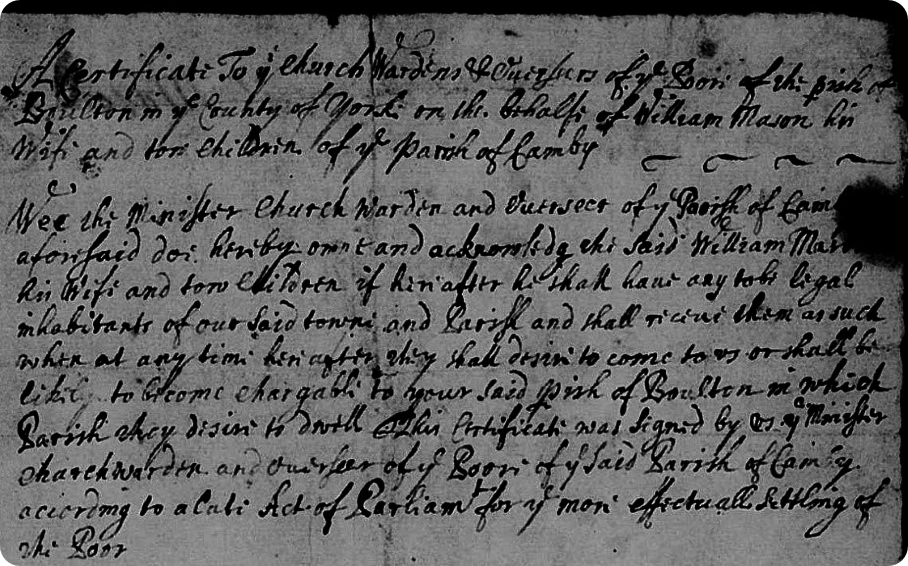 A Certificate To yͤ Church Wardens & Ouerseers of yͤ Poore of the pish of
Boulton in yͤ County of York on the behalfe of William Mason his
Wife and tow Children of yͤ Parish of Camby
Wee the Minister Church Warden and Ouerseer of yͤ Parish of Cam
aforesaid doe hereby owne and acknowledg the said William Mas
his Wife and tow Children if hereafter he shall haue any to be legal
inhabitants of our said towne and Parish and shall receiue them as such
when at any time hereafter they shall desire to come to vs or shall be
likely to become Chargable to your said pish of Boulton in which
Parish they desire to dwell This Certificate was signed by vs yͤ Minister
Churchwarden and Ouerseer of yͤ Poore of yͤ said Parish of Camby
according to a late Act of Parliamᵗ for yͤ more effectuall settling of
the Poor